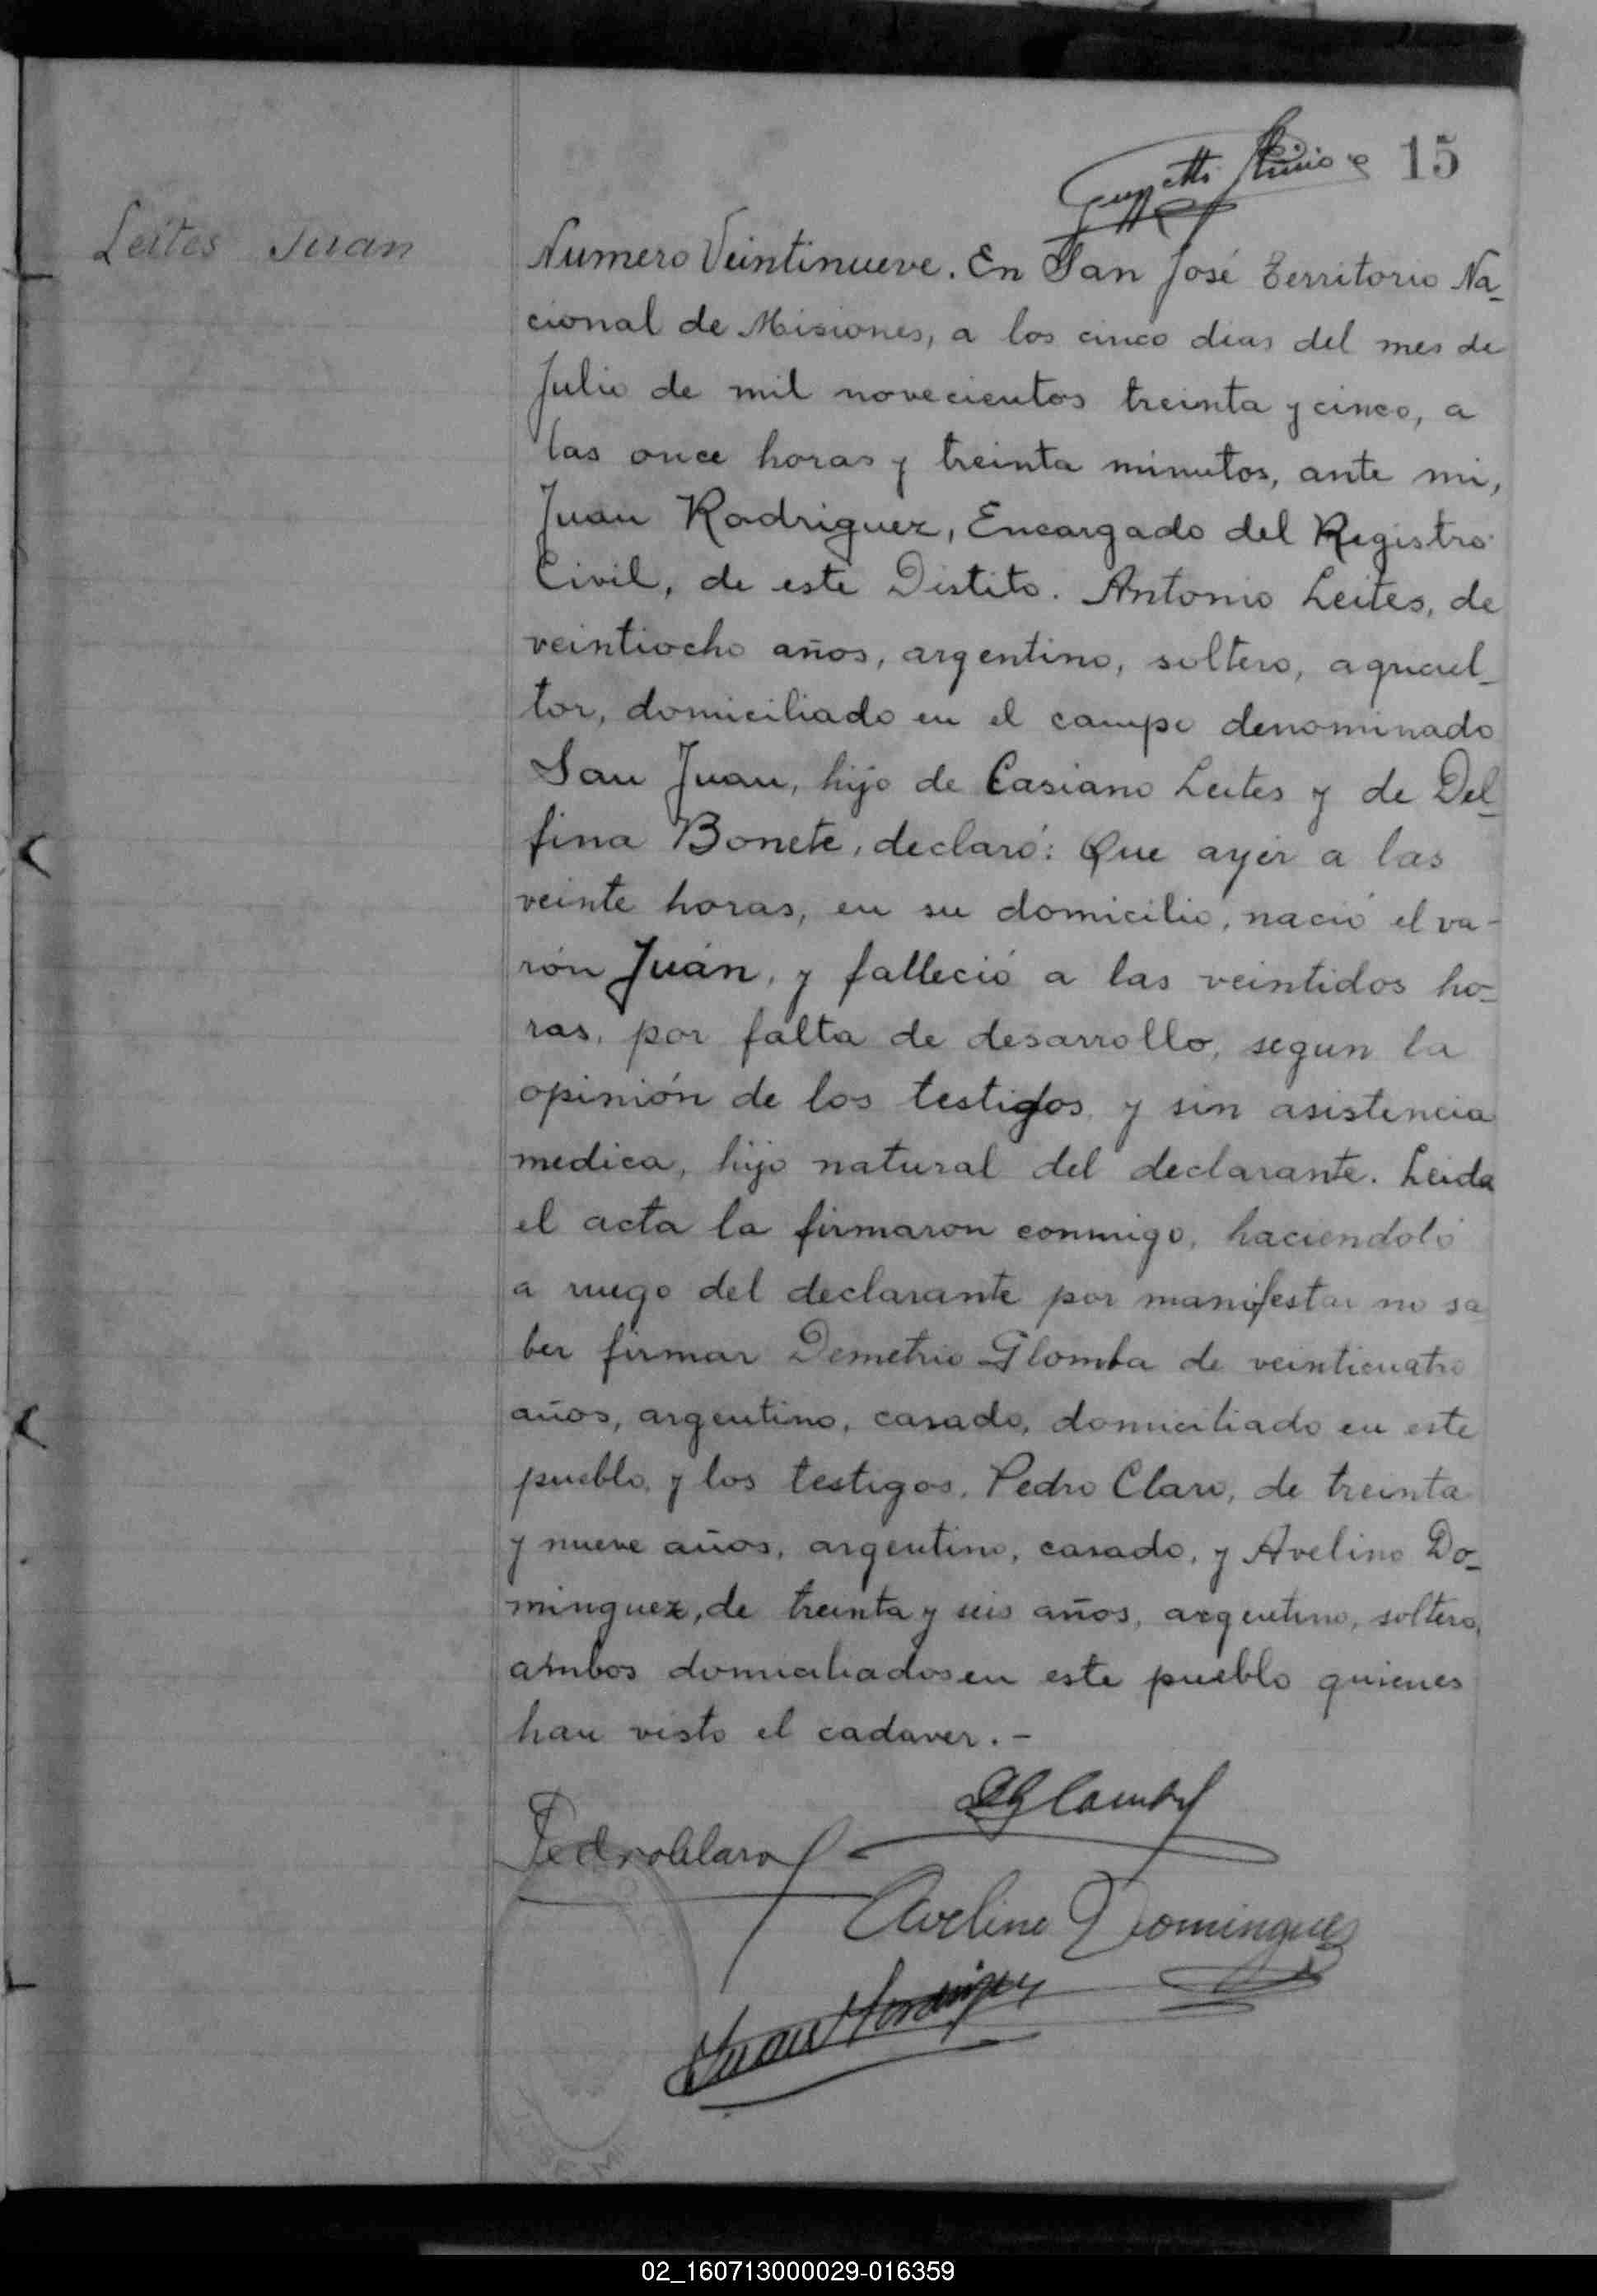 15
Leites Juan
Numero Veintinueve. En San José Territorio Na-
cional de Misiones, a los cinco dias del mes de
Julio de mil novecientos treinta y cinco, a
las once horas y treinta minutos, ante mi,
Juan Rodriguez, Encargado del Registro
Civil, de este Distito. Antonio Leites, de
veintiocho años, argentino, soltero, agricul-
tor, domiciliado en el campo denominado
San Juan, hijo de Casiano Leites y de Del-
fina Bonete, declaró: Que ayer a las
veinte horas, en su domicilio, nació el va-
rón Juán, y falleció a las veintidos ho-
ras, por falta de desarrollo, segun la
opinión de los testigos, y sin asistencia
medica, hijo natural del declarante. Leida
el acta la firmaron conmigo, haciendoló
a ruego del declarante por manifestar no sa
ber firmar Demetrio Glomba de veinticuatro
años, argentino, casado, domiciliado en este
pueblo, y los testigos, Pedro Claro, de treinta
y nueve años, argentino, casado, y Avelino Do-
minguez, de treinta y seis años, argentino, soltero,
ambos domiciliados en este pueblo quienes
han visto el cadaver. -
Pedro Claro
Avelino Dominguez
02_160713000029-016359